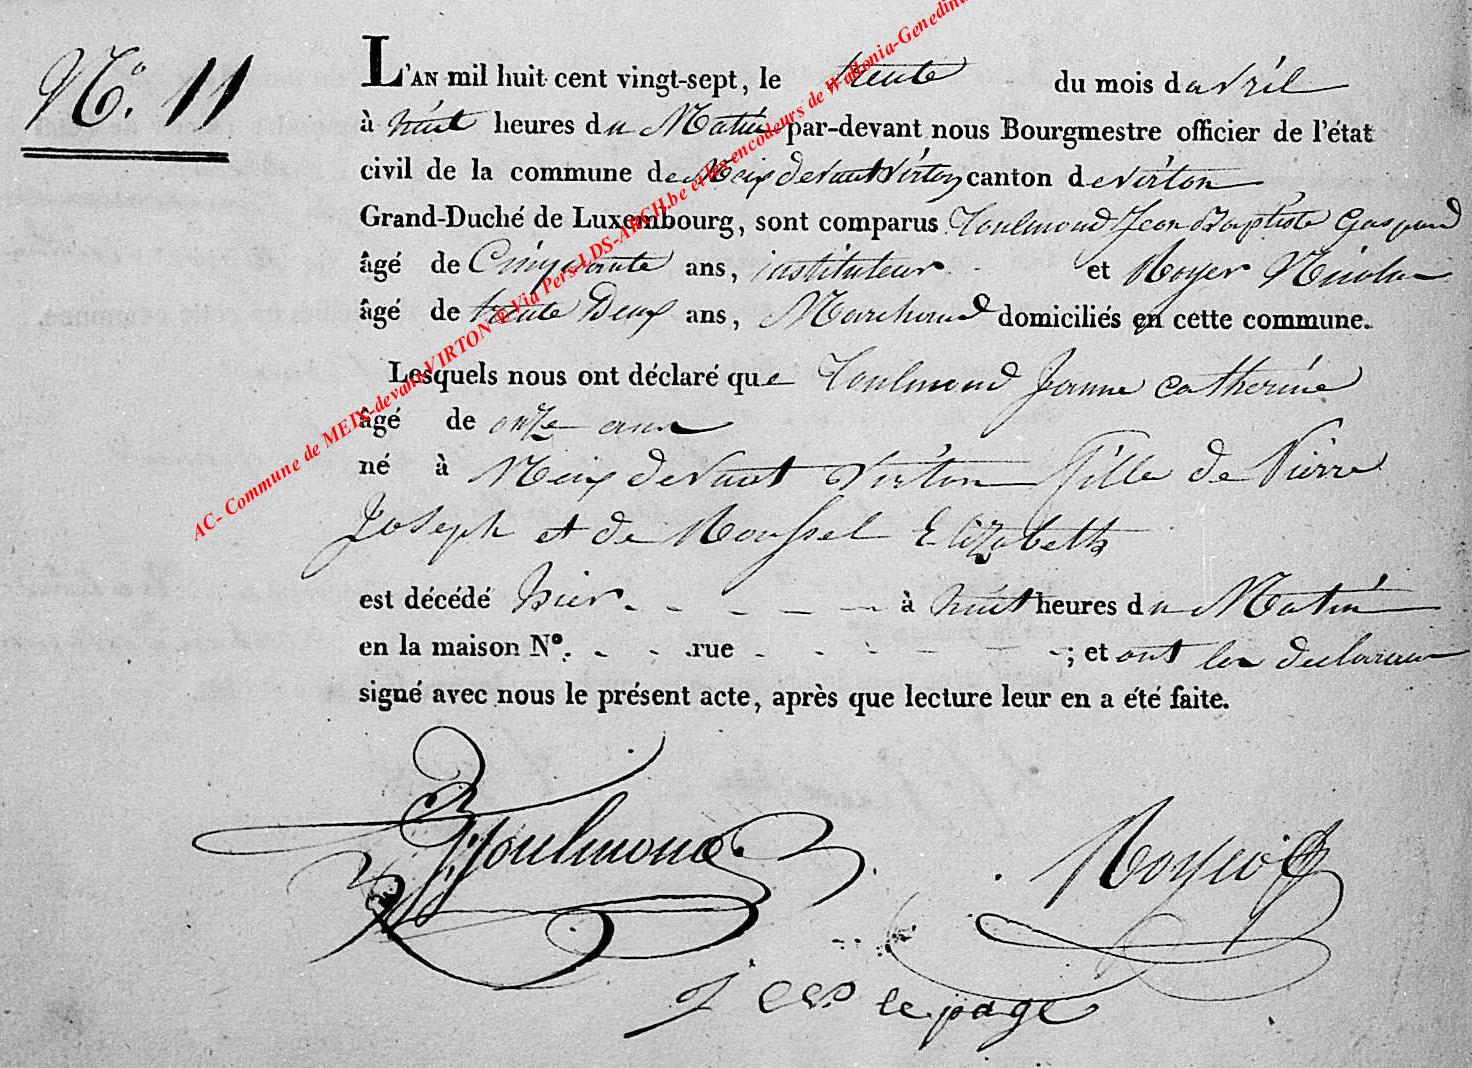 N.o 11
L'AN mil huit cent vingt-sept, le trente du mois d avril
à huit heures du Matin par-devant nous Bourgmestre officier de l'état
civil de la commune de Meix devant Virton canton de virton
Grand-Duché de Luxembourg, sont comparus Toulmond Jean Baptiste Gaspard
âgé de Cinquante ans, instituteur et Royer Nicolas
âgé de trente Deux ans, Marchand domiciliés en cette commune.
Lesquels nous ont déclaré que Toulmond Jeanne catherine
âgé de onze ans
né à Meix devant Virton fille de Pierre
Joseph et de Roussel Elizabeth
est décédé hier - - - - - à huit heures du Matin
en la maison N.o - - rue - - - - - ; et ont les declarans
signé avec nous le présent acte, après que lecture leur en a été faite.
Toulmond Royer
le page
AC- Commune de MEIX-devant-VIRTON ® Via Pers-LDS-ARCH.be et les encodeurs de Wallonia-Genedina